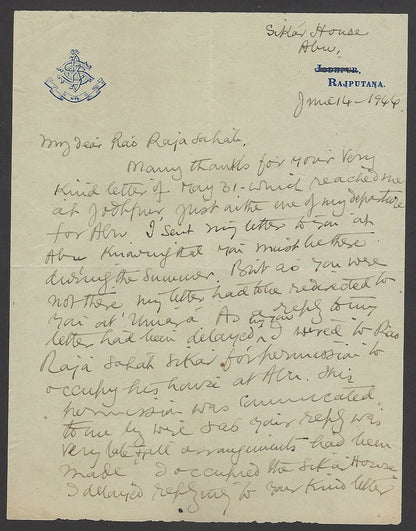 Sikar House
Abu,
JODHPUR,
RAJPUTANA.
June 14 - 1946
My dear Rao Raja Sahab,
Many thanks for your very
kind letter of May 31 - which reached me
at Jodhpur, just on the eve of my departure
for Abu. I sent my letter to you at
Abu knowing that you must be there
during the summer. But as you were
not there my letter had to be redirected to
you at Uniara. As reply to my
letter had been delayed, I wired to Rao
Raja Sahab Sikar for permission to
occupy his house at Abu. His
permission was
to me by wire & as your reply was
very late & all arrangements had been
made I occupied the Sikar House
I delayed replying to your kind letter